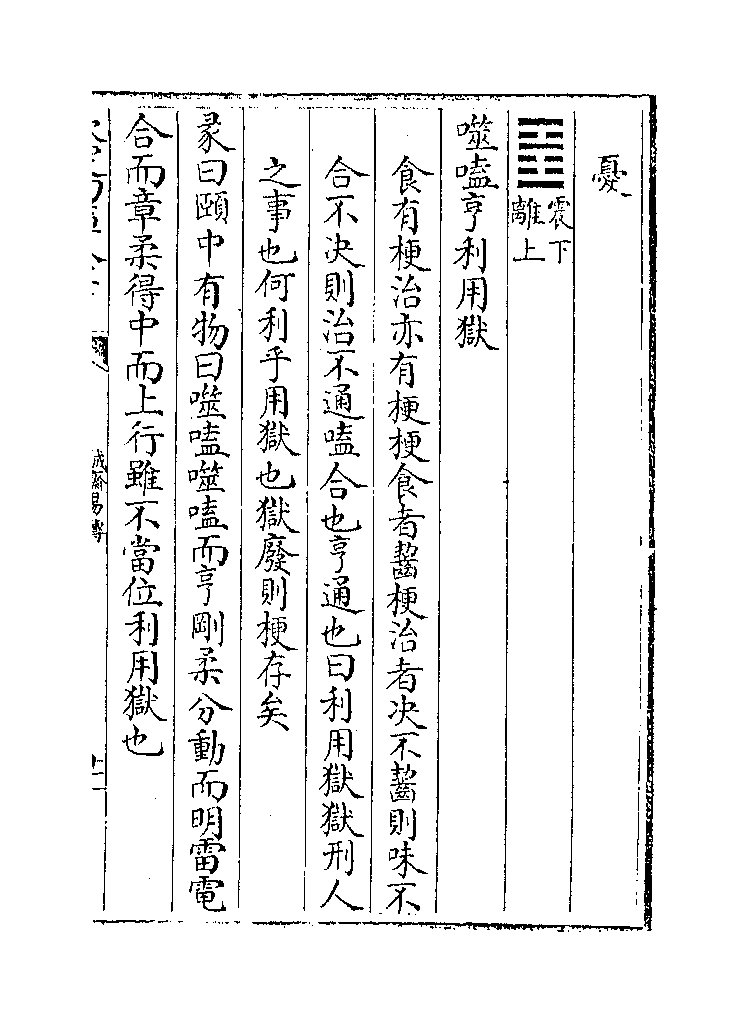 憂
䷔震下離上
噬嗑亨利用獄
食有梗治亦有梗梗食者齧梗治者决不齧則味不
合不决則治不通嗑合也亨通也曰利用獄獄刑人
之事也何利乎用獄也獄廢則梗存矣
彖曰頤中有物曰噬嗑噬嗑而亨剛柔分動而明雷電
合而章柔得中而上行雖不當位利用獄也
誠齋易傳